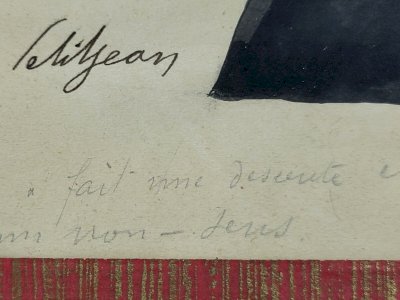 PetitJean
" fait une descente e
un non-sens.